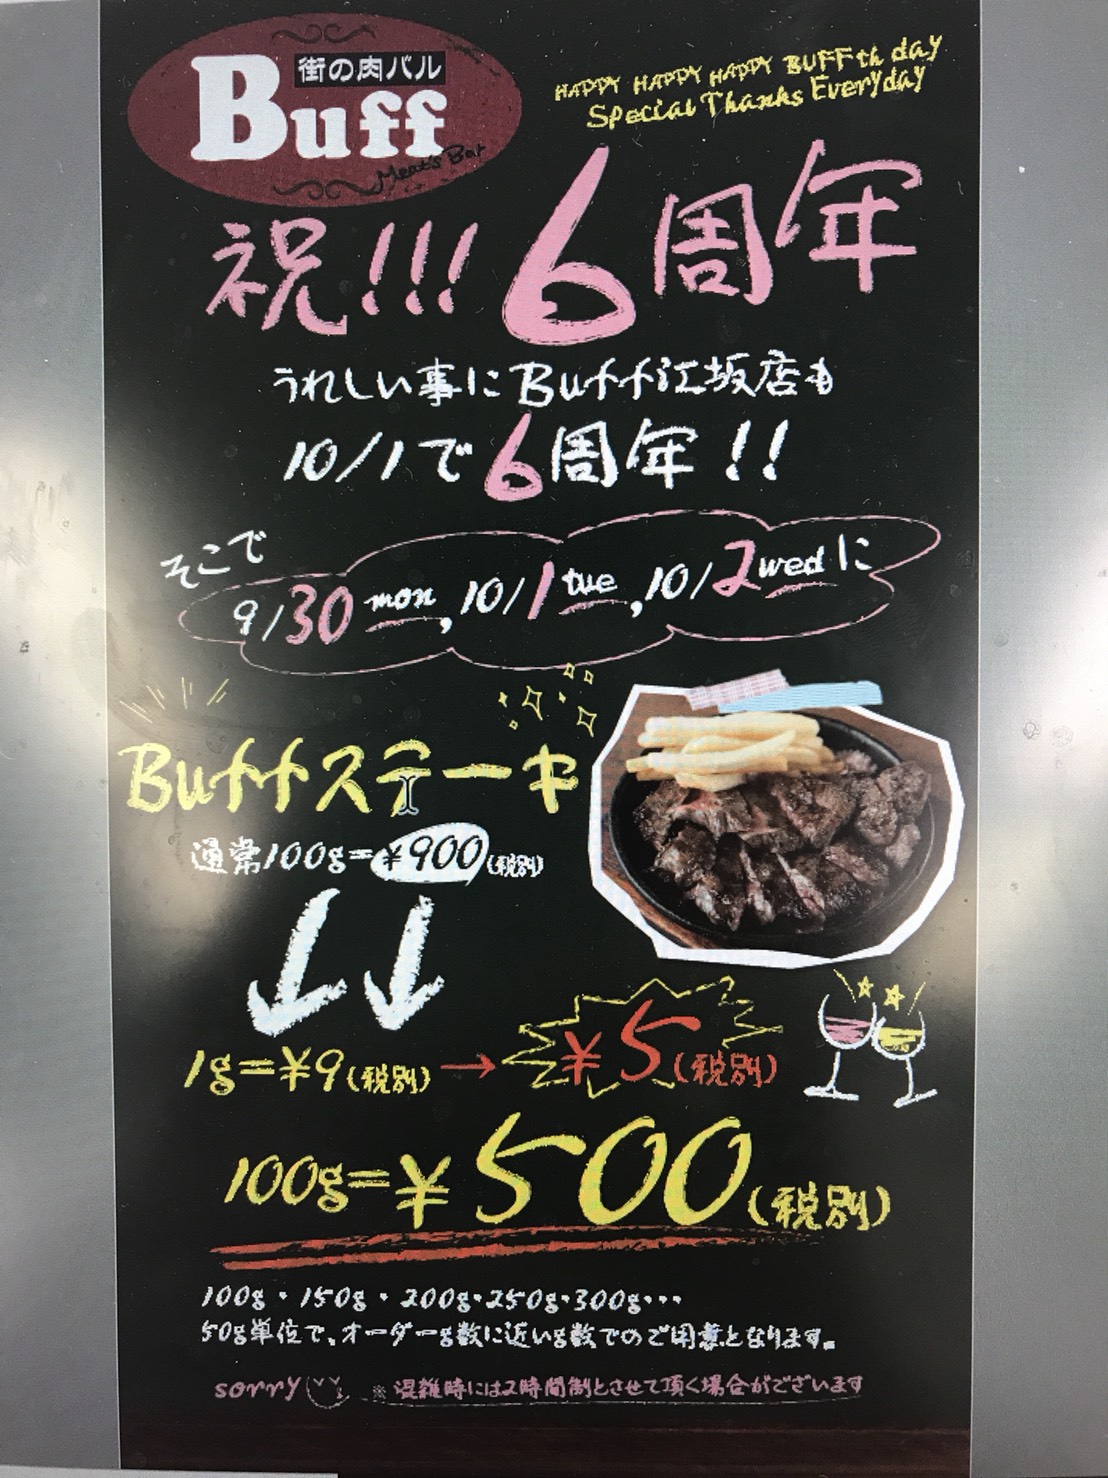 街の肉バル
Buff
Meat's Bar
HAPPY HAPPY HAPPY BUFFth day
Special Thanks Everyday
祝!!! 6周年
うれしい事にBuff江坂店も
10/1で6周年!!
そこで
9/30 mon, 10/1 tue, 10/2 wedに
Buffステーキ
通常100g=¥900(税別)
1g=¥9(税別)→¥5(税別)
100g=¥500(税別)
100g・150g・200g・250g・300g・・・
50g単位で、オーダーg数に近いg数でのご用意となります。
sorry ※混雑時には2時間制とさせて頂く場合がございます